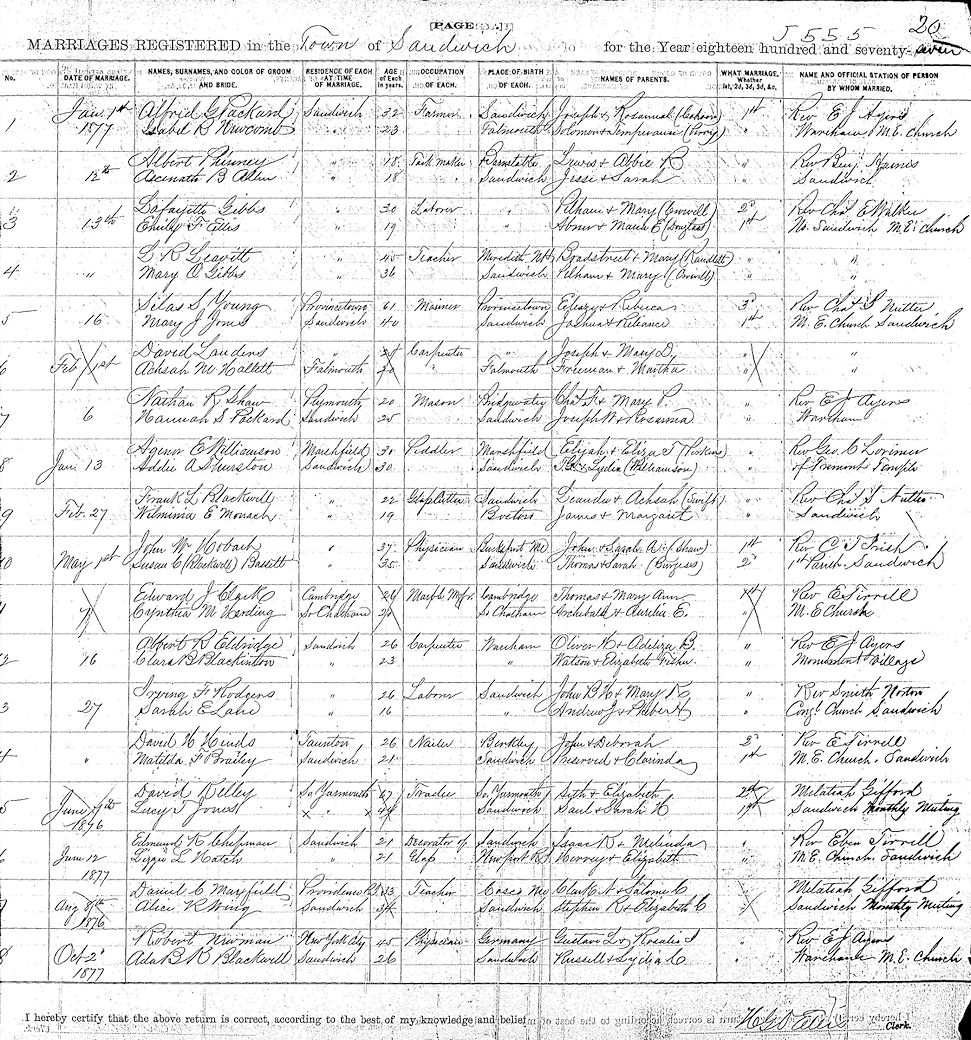 [PAGE]
20
5555
MARRIAGES REGISTERED in the Town of Sandwich for the Year eighteen hundred and seventy-seven
No. DATE OF MARRIAGE. NAMES, SURNAMES, AND COLOR OF GROOM AND BRIDE. RESIDENCE OF EACH AT TIME OF MARRIAGE. AGE of Each in years. OCCUPATION OF EACH. PLACE OF BIRTH OF EACH. NAMES OF PARENTS. WHAT MARRIAGE, Whether 1st, 2d, 3d, &c. NAME AND OFFICIAL STATION OF PERSON BY WHOM MARRIED.
1 Jan. 1st Alfred G Packard Sandwich 32 Farmer Sandwich Joseph & Rosanna 1st Rev E J Ayers
1877 Isabel R Newcomb " 23 Falmouth Solomon & Temperance (Perry) " Wareham M.E. Church
Albert Phinney " 18 Tack maker Barnstable Lewis & Abbie B " Rev Benj Haines
2 12th Asenath B Allen " 18 Sandwich Jesse & Sarah " Sandwich
Lafayette Gibbs " 30 Laborer " Pelham & Mary (Crowell) 2d Rev Chas E Walker
3 13th Emily F Ellis " 19 " Abner & Maria E (Douglass) 1st No. Sandwich M.E. Church
G R Leavitt " 40 Teacher Meredith NH Bradstreet & Mary (Randlett) " "
4 " Mary O Gibbs " 36 Sandwich Pelham & Mary (Crowell) " "
Silas S Young Provincetown 61 Mariner Provincetown Eleazy & Rebecca 3d Rev Chas S Nutter
5 16 Mary J Jones Sandwich 40 Sandwich Joshua & Reliance 1st M.E. Church Sandwich
David Landers " Carpenter " Joseph & Mary D. " "
6 Feb 1st Achsah M Hallett Falmouth 20 " Falmouth Freeman & Martha " "
Nathan R Shaw Plymouth 20 Mason Bridgewater Chas F & Mary P. " Rev E J Ayers
7 6 Hannah S Packard Sandwich 25 Sandwich Joseph W & Rosanna " Wareham
Agenor E Williamson Marshfield 30 Peddler Marshfield Elijah & Eliza T " Rev Geo. C Lorimer
8 Jan. 13 Addie A Thurston Sandwich 30 " Sandwich & Lydia (Williamson) " of Tremont Temple
Frank L Blackwell " 22 Glass Cutter Sandwich Leander & Achsah (Swift) " Rev Chas S Nutter
9 Feb. 27 Wilminia E Monach " 19 Boston James & Margaret " Sandwich
John W Hobart " 37 Physician Bucksport Me John & Sarah A. (Shaw) 1st Rev C T Irish
10 May 1st Susan C (Blackwell) Bassett " 35 Sandwich Thomas & Sarah (Burgess) 2d 1st Parish Sandwich
Edward J Clark Cambridge 26 Marble Mfr. Cambridge Thomas & Mary Ann 1st Rev E Tirrell
Cynthia M Harding So Chatham So Chatham Archibald & Aurelia E. " M.E. Church
Albert R Eldridge Sandwich 26 Carpenter Wareham Oliver H & Adeliza B. " Rev E J Ayers
12 16 Clara B Blackinton " 23 " Watson & Elizabeth " Monument Village
Irving F Rodgers " 26 Laborer Sandwich John B H & Mary K " Rev Smith Norton
13 27 Sarah E Lane " 16 " Andrew J & Phebe H " Congl Church Sandwich
David N Hinds Taunton 26 Nailer Berkley John & Deborah 2d Rev E Tirrell
" Matilda F Brailey Sandwich 21 Sandwich Preserved & Clarinda 1st M.E. Church. Sandwich
David Kelley So Yarmouth 67 Trader So. Yarmouth Seth & Elizabeth 2d Melatiah Gifford
June 7th Lucy T Jones × × Sandwich Saul & Sarah H 1st Sandwich Monthly Meeting
1876
Edmund K Chipman Sandwich 21 Decorator of Sandwich Isaac K & Melinda " Rev Eben Tirrell
June 12 Lizzie L Hatch " 21 Glass Newport RI Harvey & Elizabeth " M.E. Church. Sandwich
1877
Daniel C Maxfield Providence RI 33 Teacher Casco Me & Salome C " Melatiah Gifford
Aug 8th Alice R Wing Sandwich 34 Sandwich Stephen R & Elizabeth C " Sandwich Monthly Meeting
1876
Robert Newman New York City 45 Physician Germany Gustave L & Rosalie I " Rev E J Ayers
Oct 2d Ada B R Blackwell Sandwich 26 Sandwich Russell & Lydia C " Wareham M.E. Church
1877
I hereby certify that the above return is correct, according to the best of my knowledge and belief
Clerk.